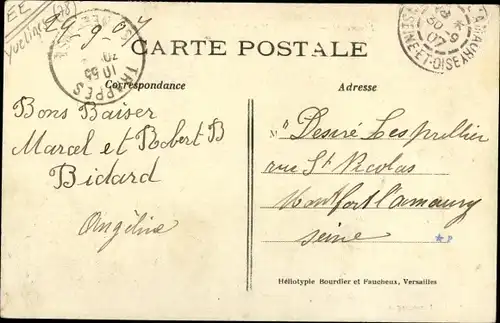 EE
Yvelines (78)
29-9-07
TRAPPES
10 55
30 -9 07
SEINE-ET-OISE
CARTE POSTALE
Correspondance
Adresse
Bons Baiser
Marcel et Robert B
Bidard
Angéline
M Desiré Lesprillier
rue St Nicolas
Montfort l'amaury
Seine
Héliotypie Bourdier et Faucheux, Versailles